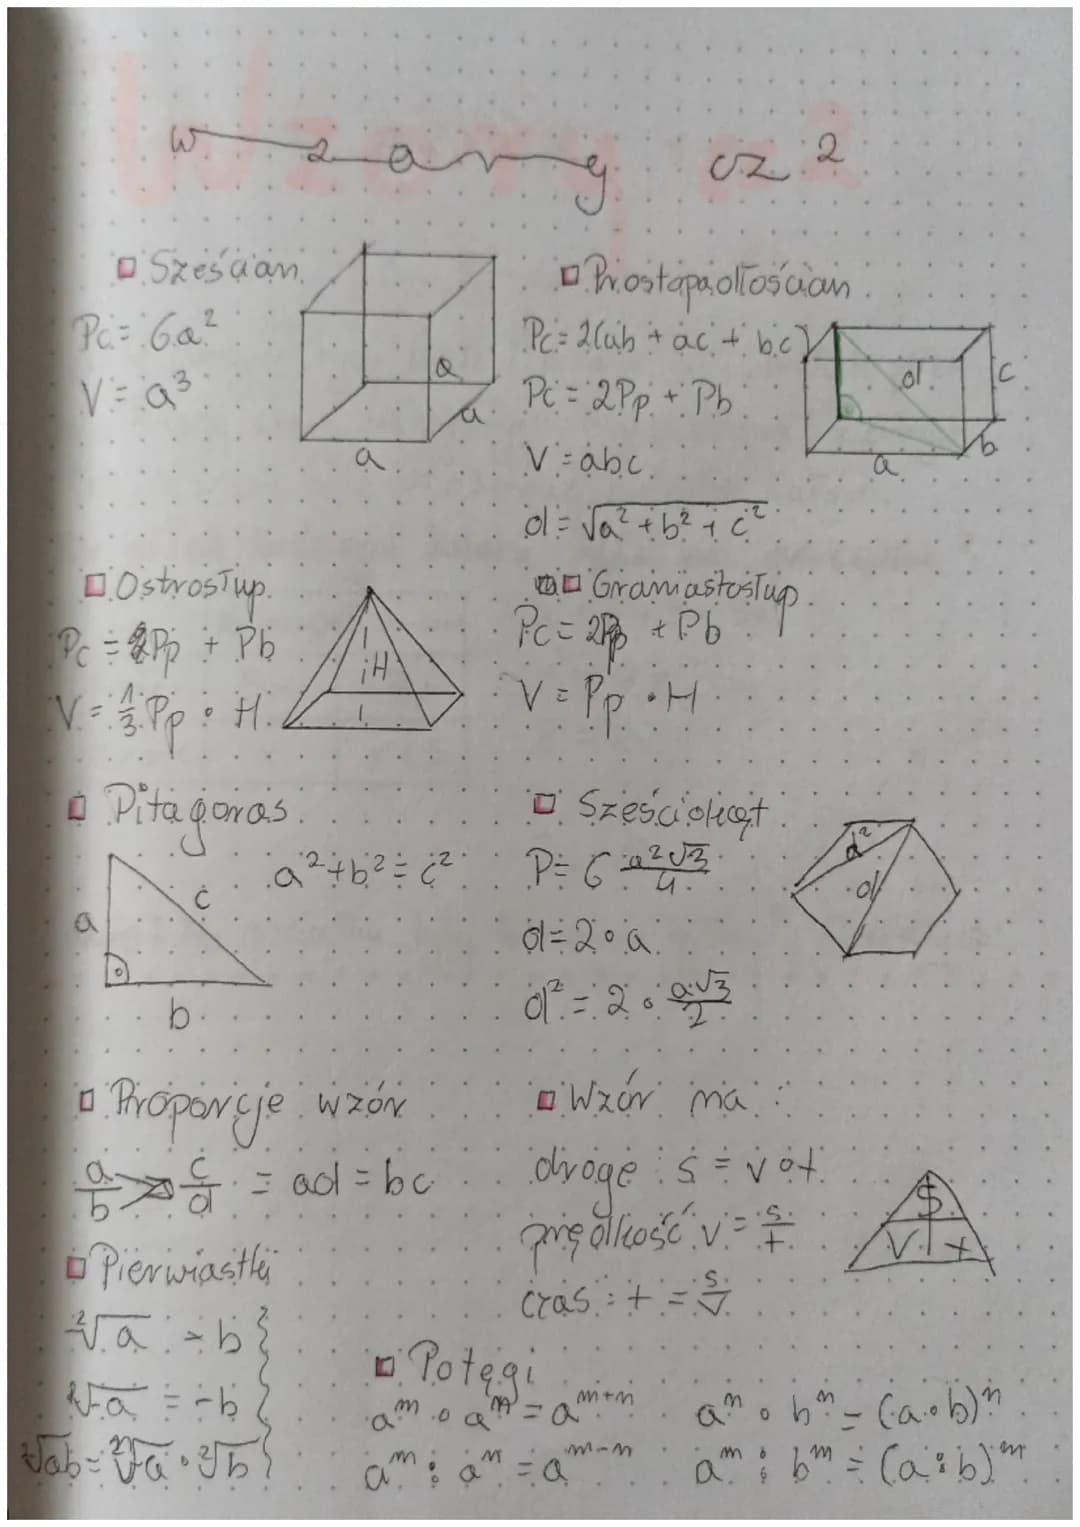 wzory cz 2
Sześcian
Pc = 6a²
V = a³
a
a
a
Prostopadłościan
Pc = 2(ab + ac + bc)
Pc = 2Pp + Pb
V = abc
d = √a² + b² + c²
d
c
b
a
Ostrosłup
Pc = Pp + Pb
V = 1/3 Pp · H
H
Graniastosłup
Pc = 2Pp + Pb
V = Pp · H
Pitagoras
a² + b² = c²
a
c
b
Sześciokąt
P = 6 a²√3/4
d = 2 · a
d² = 2 · a√3/2
d²
d
Proporcje wzór
a/b c/d = ad = bc
Wzór na :
drogę : s = v · t
prędkość v = s/t
czas : t = s/v
S
V t
Pierwiastki
²√a = b
√-a = -b
√ab = ²√a · ²√b
Potęgi
aᵐ · aⁿ = aᵐ⁺ⁿ
aᵐ : aⁿ = aᵐ⁻ⁿ
aⁿ · bⁿ = (a · b)ⁿ
aᵐ : bᵐ = (a : b)ᵐ